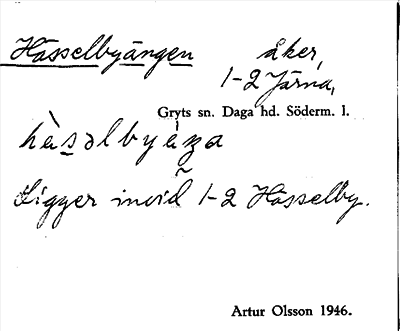 Hässelbyängen åker,
1-2 Järna,
Gryts sn. Daga hd. Söderm. l.
Ligger invid 1-2 Hässelby.
Artur Olsson 1946.